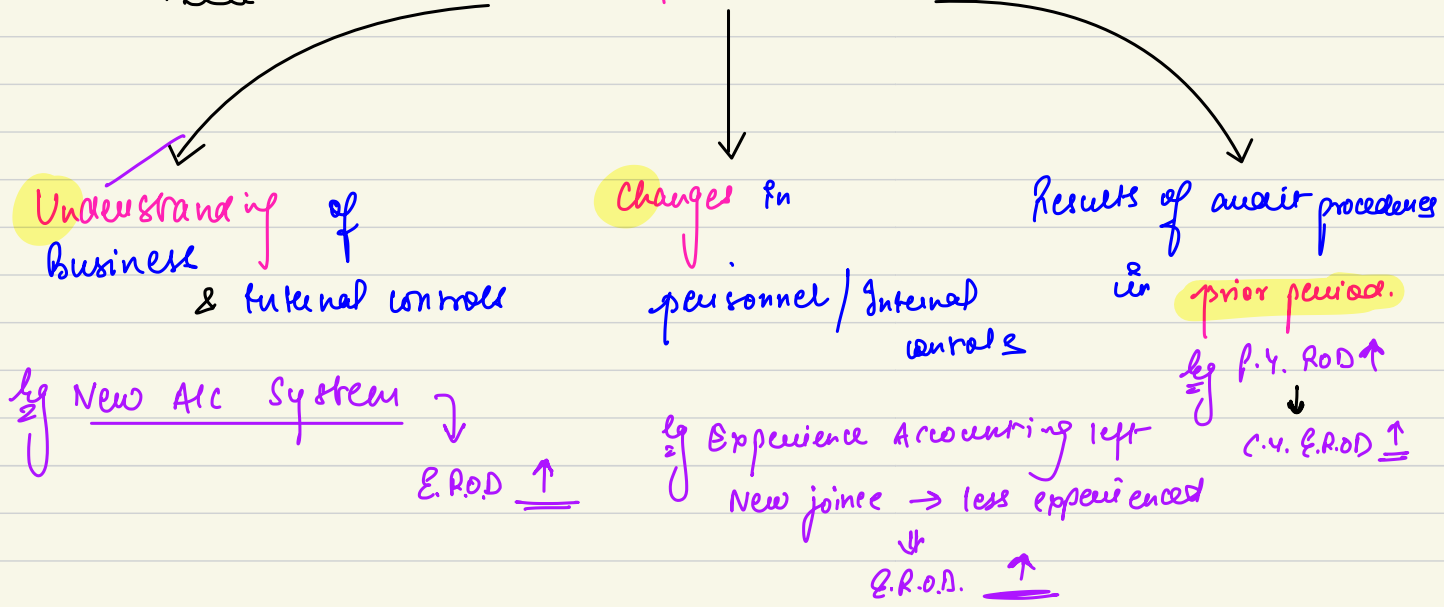 Understanding of
Business
& Internal controls
eg New A/c System
E.R.O.D ↑
Changes in
personnel / Internal
controls
eg Experience Accounting left
New joinee → less experienced
E.R.O.D. ↑
Results of audit procedures
in
prior period.
eg P.Y. ROD ↑
C.Y. E.R.O.D ↑